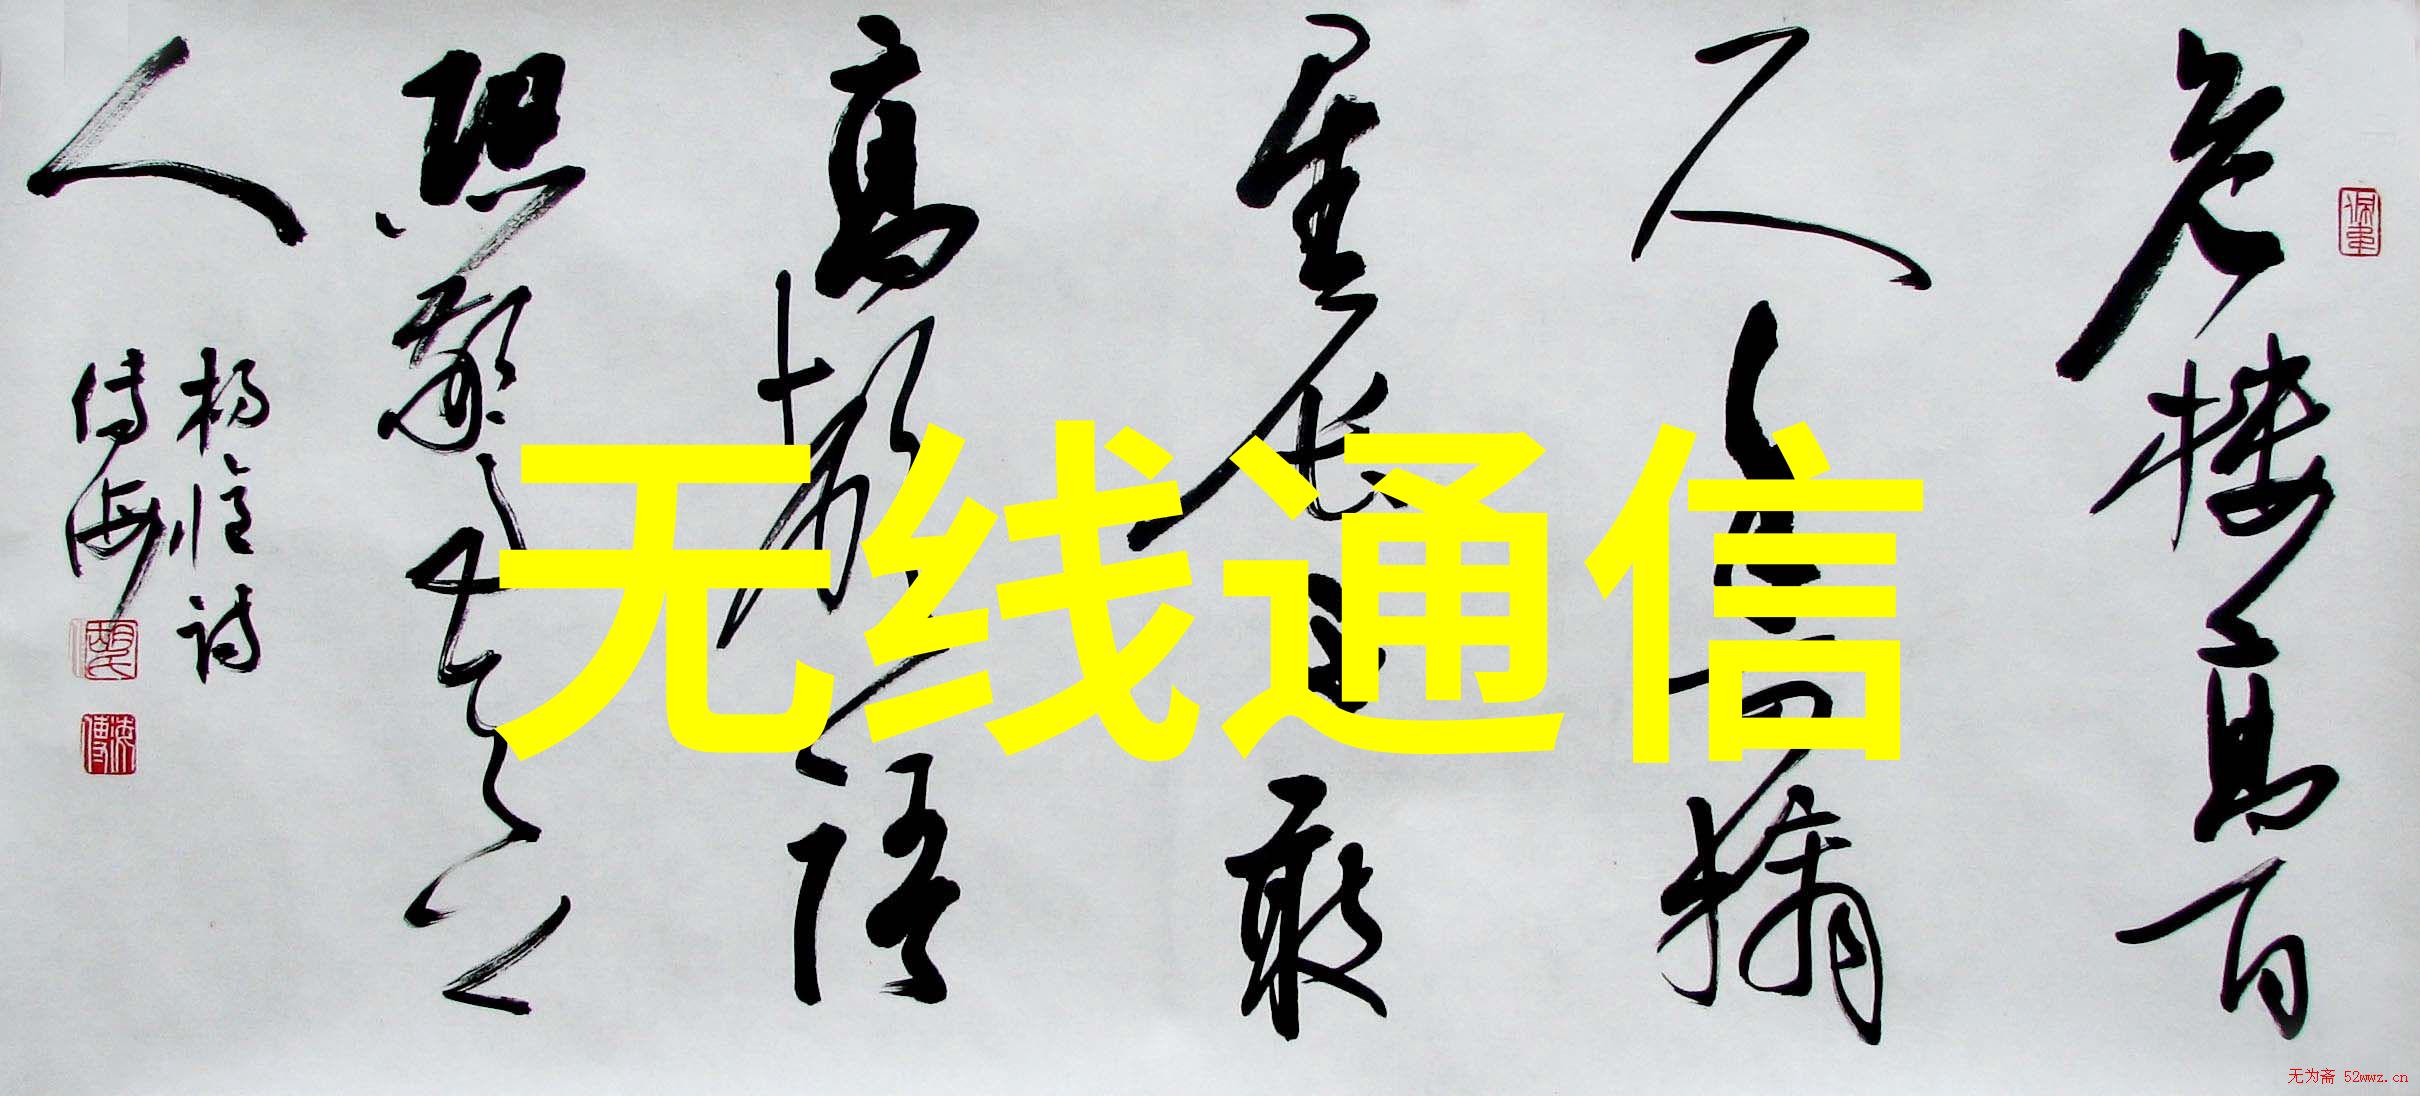 危楼高百
尺手可摘
星辰不敢
高声语
恐惊天上
人
杨亿诗
傅海
无线通信
无为斋 52wwz.cn